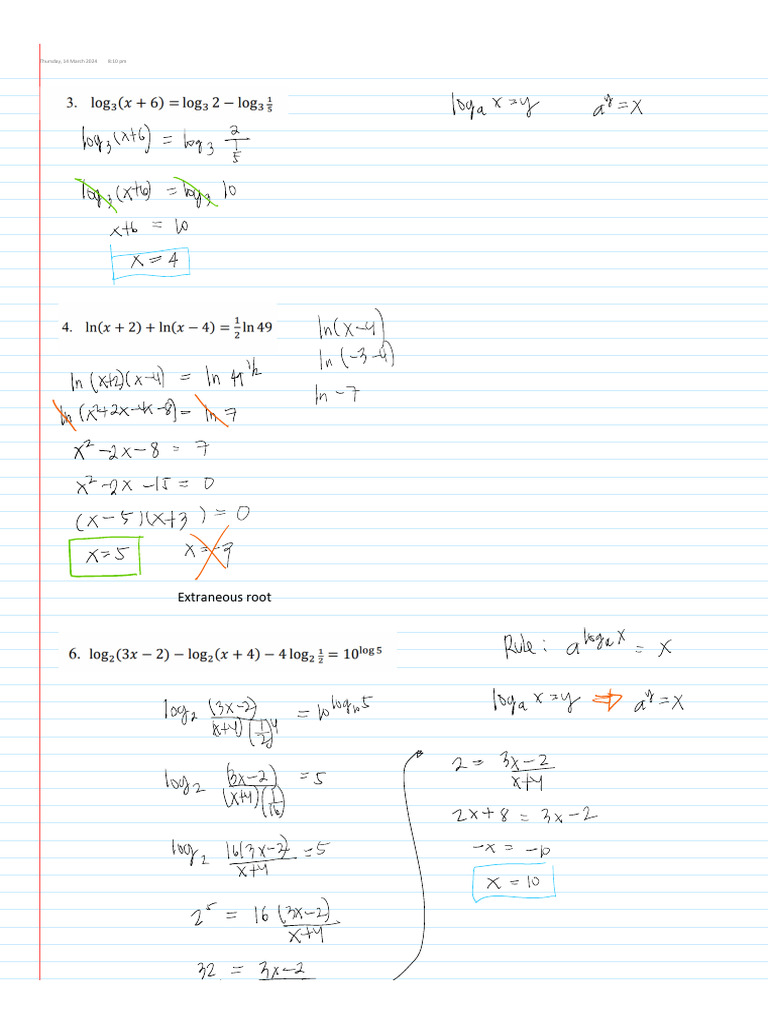 Thursday, 14 March 2024 8:10 pm
3. log₃(x + 6) = log₃ 2 − log₃ 1/5
logₐ x = y aʸ = x
log₃ (x+6) = log₃ 2/(1/5)
log₃ (x+6) = log₃ 10
x+6 = 10
x = 4
4. ln(x + 2) + ln(x − 4) = 1/2 ln 49
ln(x−4)
ln(−3−4)
ln −7
ln (x+2)(x−4) = ln 49^1/2
ln (x²+2x−4x−8) = ln 7
x² −2x −8 = 7
x² −2x −15 = 0
(x−5)(x+3) = 0
x=5 x=−3
Extraneous root
6. log₂(3x − 2) − log₂(x + 4) − 4 log₂ 1/2 = 10^log 5
Rule: a^logₐx = x
logₐ x = y ⇒ aʸ = x
log₂ (3x−2)/((x+4)(1/2)⁴) = 10^log₁₀5
log₂ (3x−2)/((x+4)(1/16)) = 5
log₂ 16(3x−2)/(x+4) = 5
2⁵ = 16(3x−2)/(x+4)
32 = 3x−2
2 = (3x−2)/(x+4)
2x+8 = 3x−2
−x = −10
x = 10